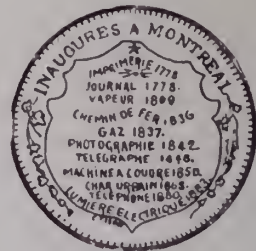 INAUGURES A MONTREAL
IMPRIMERIE 1778
JOURNAL 1778.
VAPEUR 1809
CHEMIN DE FER, 1836
GAZ 1837.
PHOTOGRAPHIE 1842
TELEGRAPHE 1848.
MACHINES A COUDRE 1850.
CHAR URBAIN 1863.
TELEPHONE 1880
LUMIERE ELECTRIQUE 1883